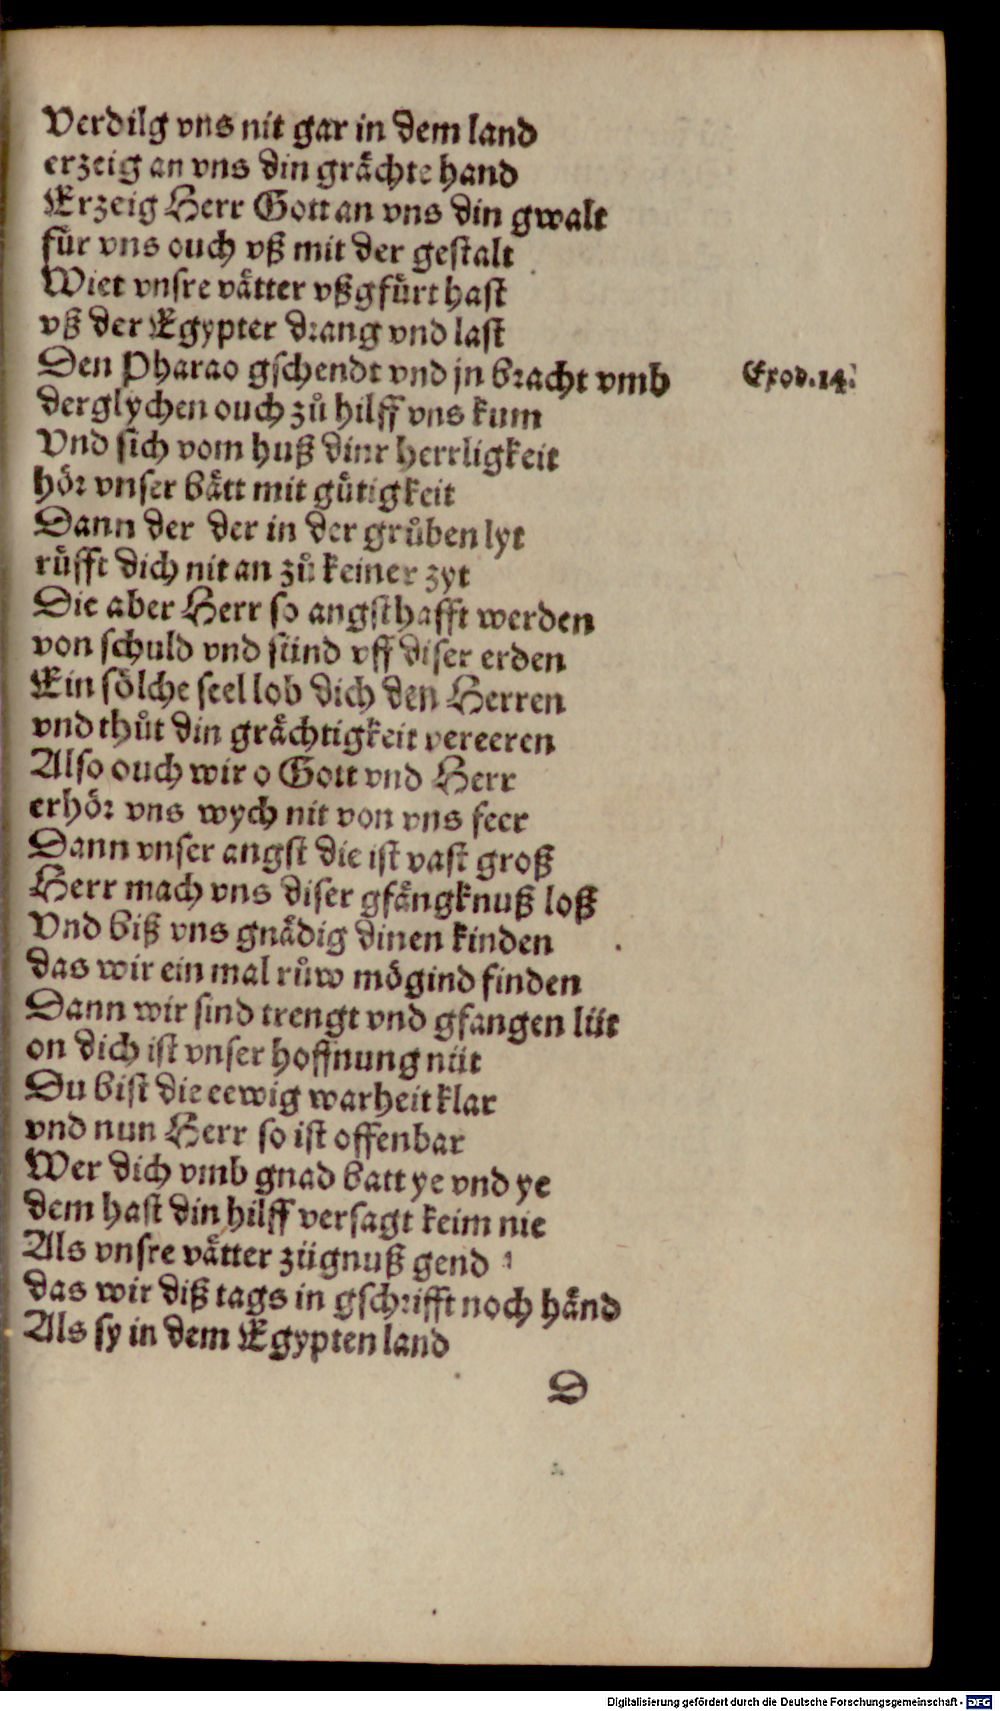 Verdilg vns nit gar in dem land
erzeig an vns din grächte hand
Erzeig Herr Gott an vns din gwalt
für vns ouch vß mit der gestalt
Wiet vnsre vätter vßgfürt hast
vß der Egypter drang vnd last
Den Pharao gschendt vnd jn bracht vmb
Exod.14.
derglychen ouch zů hilff vns kum
Vnd sich vom huß dinr herrligkeit
hör vnser bätt mit gütigkeit
Dann der der in der grůben lyt
rüfft dich nit an zů keiner zyt
Die aber Herr so angsthafft werden
von schuld vnd sünd vff diser erden
Ein sölche seel lob dich den Herren
vnd thůt din grächtigkeit vereeren
Also ouch wir o Gott vnd Herr
erhör vns wych nit von vns feer
Dann vnser angst die ist vast groß
Herr mach vns diser gfängknuß loß
Vnd biß vns gnädig dinen kinden
das wir ein mal růw mögind finden
Dann wir sind trengt vnd gfangen lüt
on dich ist vnser hoffnung nüt
Du bist die eewig warheit klar
vnd nun Herr so ist offenbar
Wer dich vmb gnad batt ye vnd ye
dem hast din hilff versagt keim nie
Als vnsre vätter zügnuß gend
das wir diß tags in gschrifft noch händ
Als sy in dem Egypten land
D
Digitalisierung gefördert durch die Deutsche Forschungsgemeinschaft - DFG